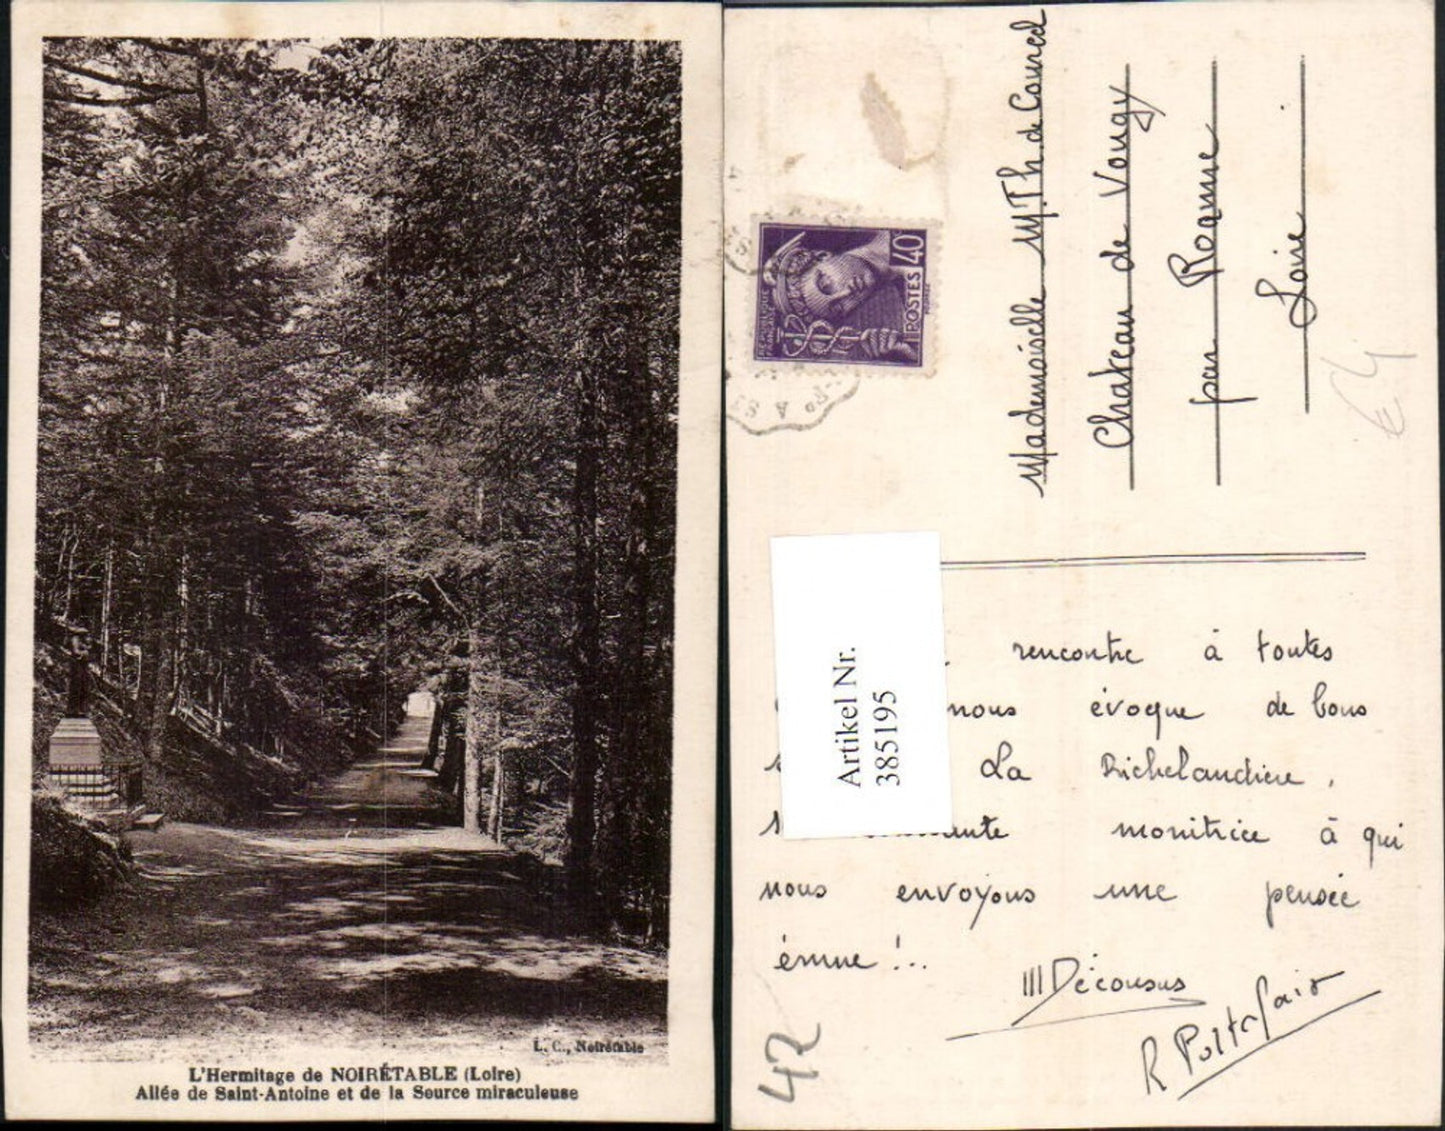 L. C., Noirétable
L'Hermitage de NOIRÉTABLE (Loire)
Allée de Saint-Antoine et de la Source miraculeuse
40c
POSTES
Mademoiselle M. Th. de Courcel
Chateau de Vougy
par Roanne
Loire
€4
Artikel Nr.
385195
rencontre à toutes
nous évoque de bons
La Richelandière,
monitrice à qui
nous envoyons une pensée
émue !..
III Décousus
R Poltafair
42